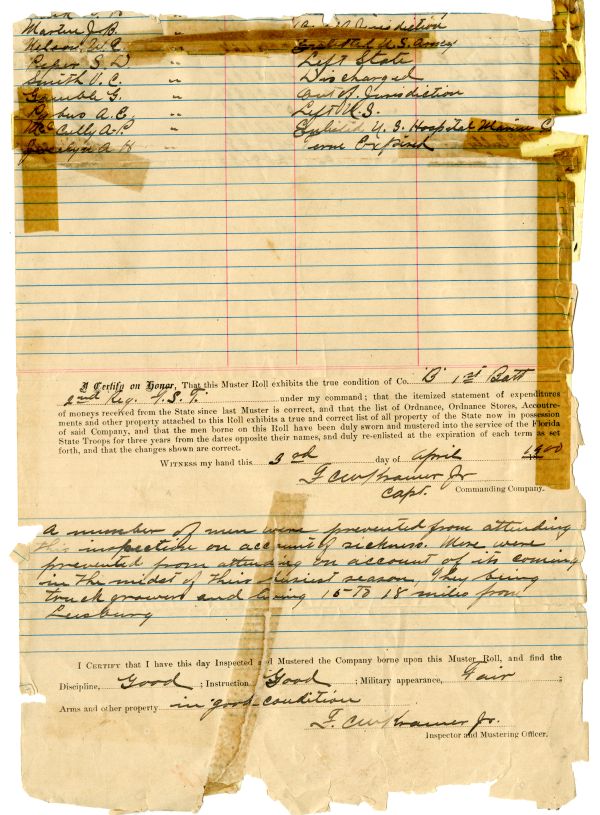 Martin J. B. " Out of Jurisdiction
Nelson, W. C. " Enlisted U. S. Army
Peter S. D " Left State
Smith V. C. " Discharged
Gamble G. " Out of Jurisdiction
Rybus A. C, " Left U. S.
McCully A. P. " Enlisted U. S. Hospital Marine C
Jocelyn A H " Expired
I Certify on Honor, That this Muster Roll exhibits the true condition of Co. "B" 1st Batt
2nd Reg. F. S. T. under my command; that the itemized statement of expenditures
of moneys received from the State since last Muster is correct, and that the list of Ordnance, Ordnance Stores, Accoutre-
ments and other property attached to this Roll exhibits a true and correct list of all property of the State now in possession
of said Company, and that the men borne on this Roll have been duly sworn and mustered into the service of the Florida
State Troops for three years from the dates opposite their names, and duly re-enlisted at the expiration of each term as set
forth, and that the changes shown are correct.
Witness my hand this 3rd day of April 1900
F CW Kramer Jr
Capt. Commanding Company.
A number of men were prevented from attending
this inspection on account of sickness. More were
prevented from attending on account of its coming
in the midst of their busiest season, They being
truck growers and living 15 to 18 miles from
Leesburg
I Certify that I have this day Inspected and Mustered the Company borne upon this Muster Roll, and find the
Discipline, Good ; Instruction Good ; Military appearance, Fair ;
Arms and other property in good condition
F. CW Kramer Jr.
Inspector and Mustering Officer.